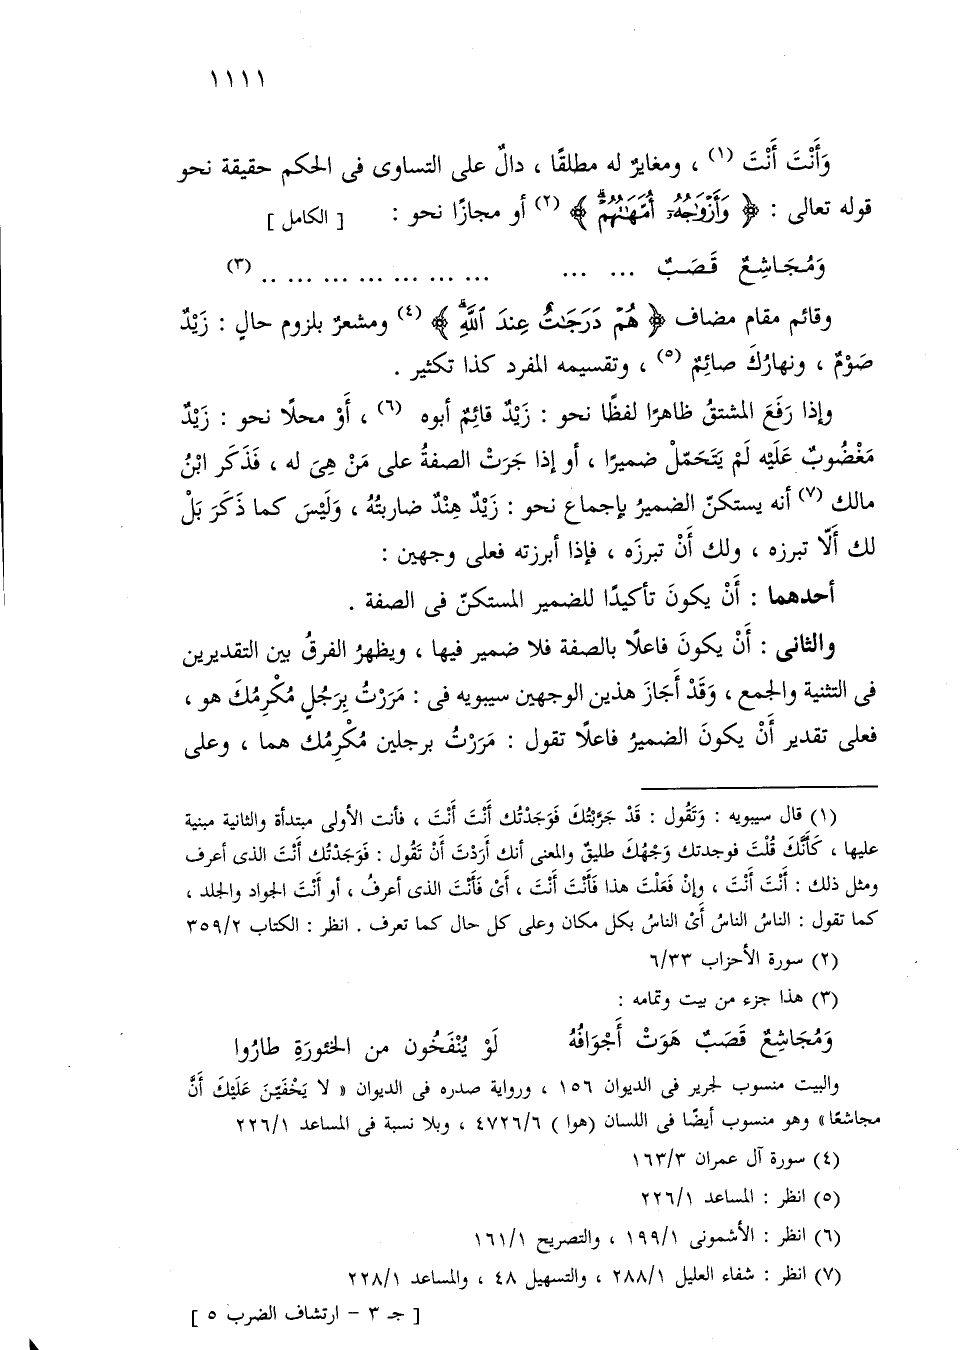 ١١١١
وَأَنْتَ أَنْتَ (١) ، ومغايرٌ له مطلقًا ، دالٌ على التساوى فى الحكم حقيقة نحو
قوله تعالى : ﴿ وَأَزْوَٰجُهُۥٓ أُمَّهَٰتُهُمْ ﴾ (٢) أو مجازًا نحو : [ الكامل ]
وَمُجَاشِعٌ قَصَبٌ ... ... ... ... ... ... ... ... ... .. (٣)
وقائم مقام مضاف ﴿ هُمْ دَرَجَٰتٌ عِندَ ٱللَّهِ ﴾ (٤) ومشعرٌ بلزوم حالٍ : زَيْدٌ
صَوْمٌ ، ونهارُكَ صائِمٌ (٥) ، وتقسيمه المفرد كذا تكثير .
وإذا رَفَعَ المشتقُ ظاهرًا لفظًا نحو : زَيْدٌ قائِمٌ أبوه (٦) ، أَوْ محلًا نحو : زَيْدٌ
مَغْضُوبٌ عَلَيْه لَمْ يَتَحَمّلْ ضميرًا ، أو إذا جَرَتْ الصفةُ على مَنْ هِىَ له ، فَذَكَر ابْنُ
مالك (٧) أنه يستكنّ الضميرُ بإجماع نحو : زَيْدٌ هِنْدٌ ضاربتُهُ ، وَلَيْسَ كما ذَكَرَ بَلْ
لك أَلّا تبرزه ، ولك أَنْ تبرزَه ، فإذا أبرزته فعلى وجهين :
أحدهما : أَنْ يكونَ تأكيدًا للضمير المستكنّ فى الصفة .
والثانى : أَنْ يكونَ فاعلًا بالصفة فلا ضمير فيها ، ويظهرُ الفرقُ بين التقديرين
فى التثنية والجمع ، وَقَدْ أَجَازَ هذين الوجهين سيبويه فى : مَرَرْتُ بِرَجُلٍ مُكْرِمُكَ هو ،
فعلى تقدير أَنْ يكونَ الضميرُ فاعلًا تقول : مَرَرْتُ برجلين مُكْرِمُك هما ، وعلى
(١) قال سيبويه : وَتَقُول : قَدْ جَرَّبْتُكَ فَوَجَدْتُك أَنْتَ أَنْتَ ، فأنت الأولى مبتدأة والثانية مبنية
عليها ، كَأَنَّكَ قُلْتَ فوجدتك وَجْهُكَ طليقٌ والمعنى أنك أَرَدْتَ أَنْ تَقُول : فَوَجَدْتُك أَنْتَ الذى أعرف
ومثل ذلك : أَنْتَ أَنْتَ ، وإنْ فَعَلْتَ هذا فَأَنْتَ أَنْتَ ، أَىْ فَأَنْتَ الذى أعرفُ ، أو أَنْتَ الجواد والجلد ،
كما تقول : الناسُ الناسُ أَىْ الناسُ بكل مكان وعلى كل حال كما تعرف . انظر : الكتاب ٣٥٩/٢
(٢) سورة الأحزاب ٦/٣٣
(٣) هذا جزء من بيت وتمامه :
وَمُجَاشِعٌ قَصَبٌ هَوَتْ أَجْوَافُهُ لَوْ يُنْفَخُون من الخئورَةِ طارُوا
والبيت منسوب لجرير فى الديوان ١٥٦ ، ورواية صدره فى الديوان « لا يَخْفَيّنَ عَلَيْكَ أَنَّ
مجاشعًا» وهو منسوب أيضًا فى اللسان (هوا ) ٤٧٢٦/٦ ، وبلا نسبة فى المساعد ٢٢٦/١
(٤) سورة آل عمران ١٦٣/٣
(٥) انظر : المساعد ٢٢٦/١
(٦) انظر : الأشمونى ١٩٩/١ ، والتصريح ١٦١/١
(٧) انظر : شفاء العليل ٢٨٨/١ ، والتسهيل ٤٨ ، والمساعد ٢٢٨/١
[ جـ ٣ – ارتشاف الضرب ٥ ]